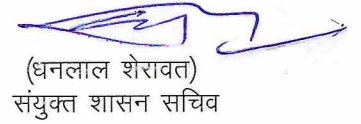 (धनलाल शेरावत)
संयुक्त शासन सचिव